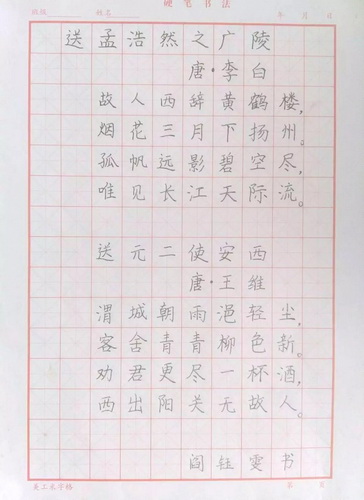 硬笔书法
班级 姓名 年 月 日
送孟浩然之广陵
唐·李白
故人西辞黄鹤楼，
烟花三月下扬州。
孤帆远影碧空尽，
唯见长江天际流。
送元二使安西
唐·王维
渭城朝雨浥轻尘，
客舍青青柳色新。
劝君更尽一杯酒，
西出阳关无故人。
阎钰雯书
第 页